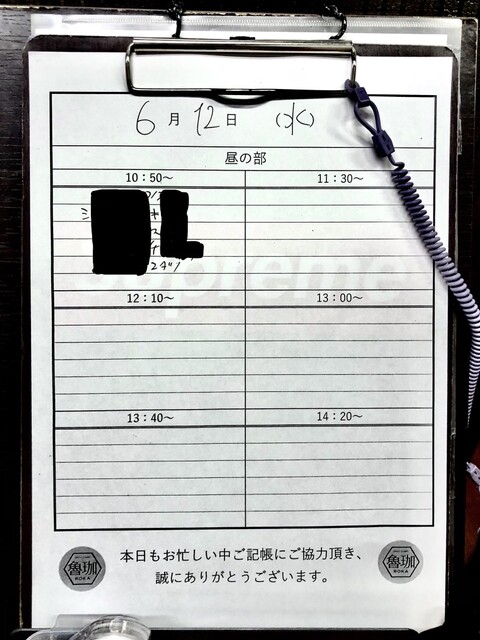 6月12日 (水)
昼の部
10：50～
11：30～
12：10～
13：00～
13：40～
14：20～
本日もお忙しい中ご記帳にご協力頂き、
誠にありがとうございます。
魯珈
ROKA
魯珈
ROKA